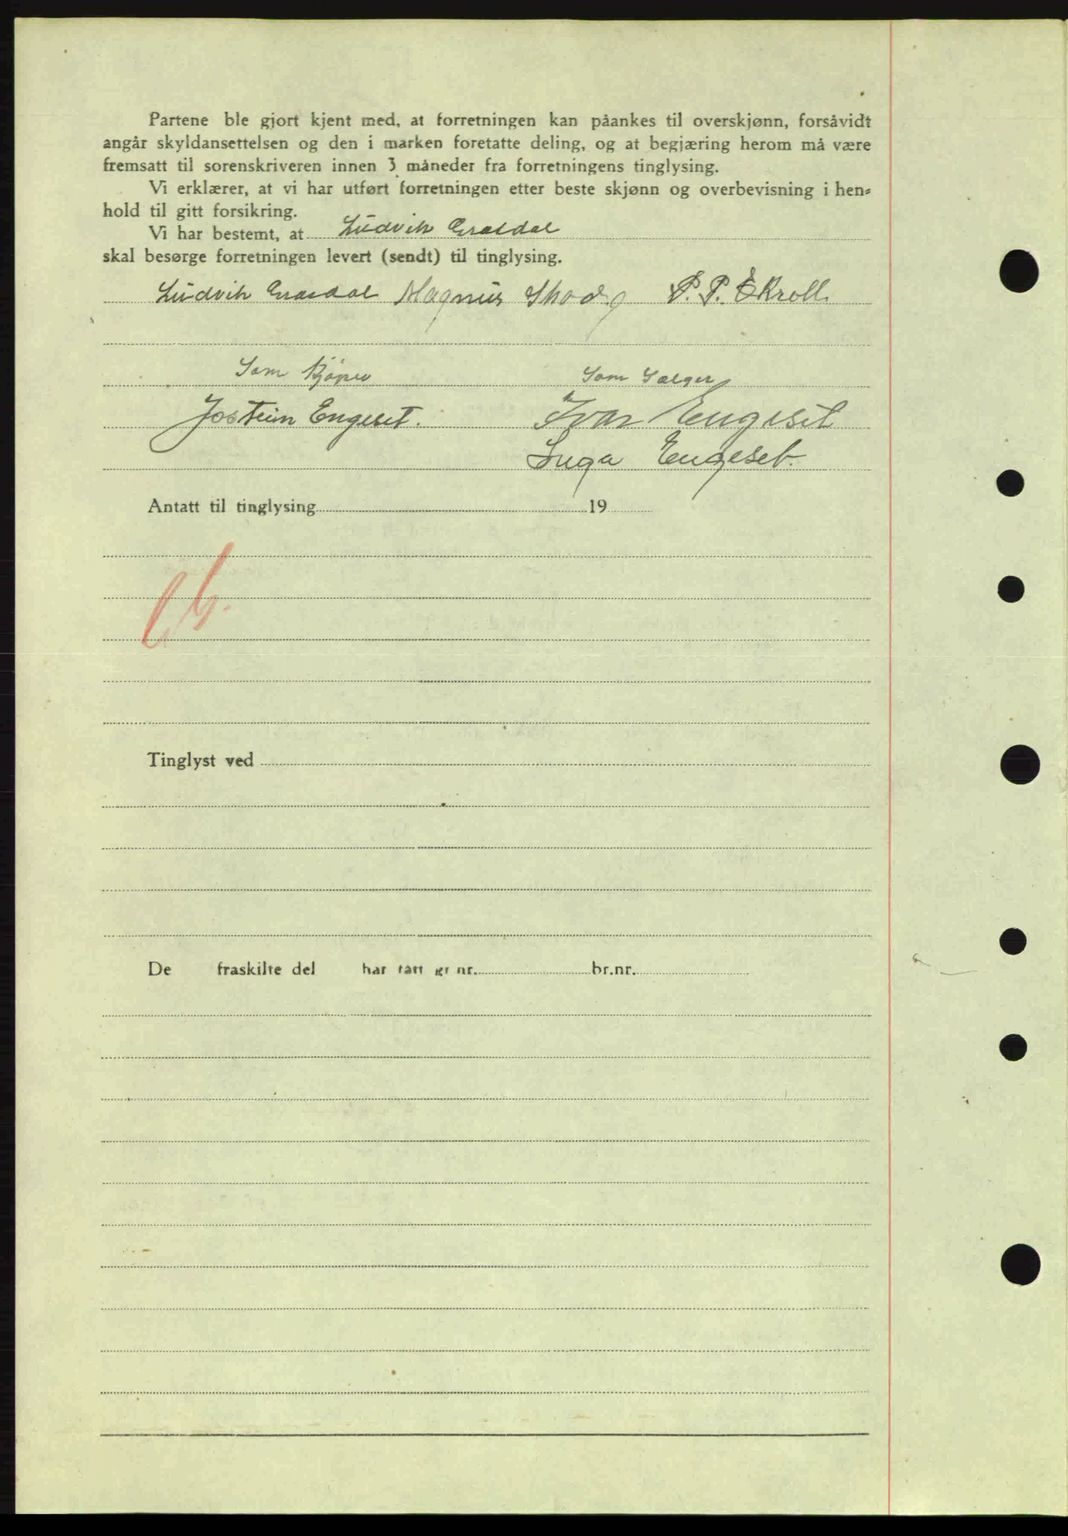 Partene ble gjort kjent med, at forretningen kan påankes til overskjønn, forsåvidt
angår skyldansettelsen og den i marken foretatte deling, og at begjæring herom må være
fremsatt til sorenskriveren innen 3 måneder fra forretningens tinglysing.
Vi erklærer, at vi har utført forretningen etter beste skjønn og overbevisning i hen-
hold til gitt forsikring.
Vi har bestemt, at Ludvik
skal besørge forretningen levert (sendt) til tinglysing.
Ludvik Magnus P. P. Ekroll.
Som Kjøper Som Sælger
Jostein Engeset. Ivar Engeset
Inga Engeset.
Antatt til tinglysing 19
Tinglyst ved
De fraskilte del har fått gr.nr. br.nr.